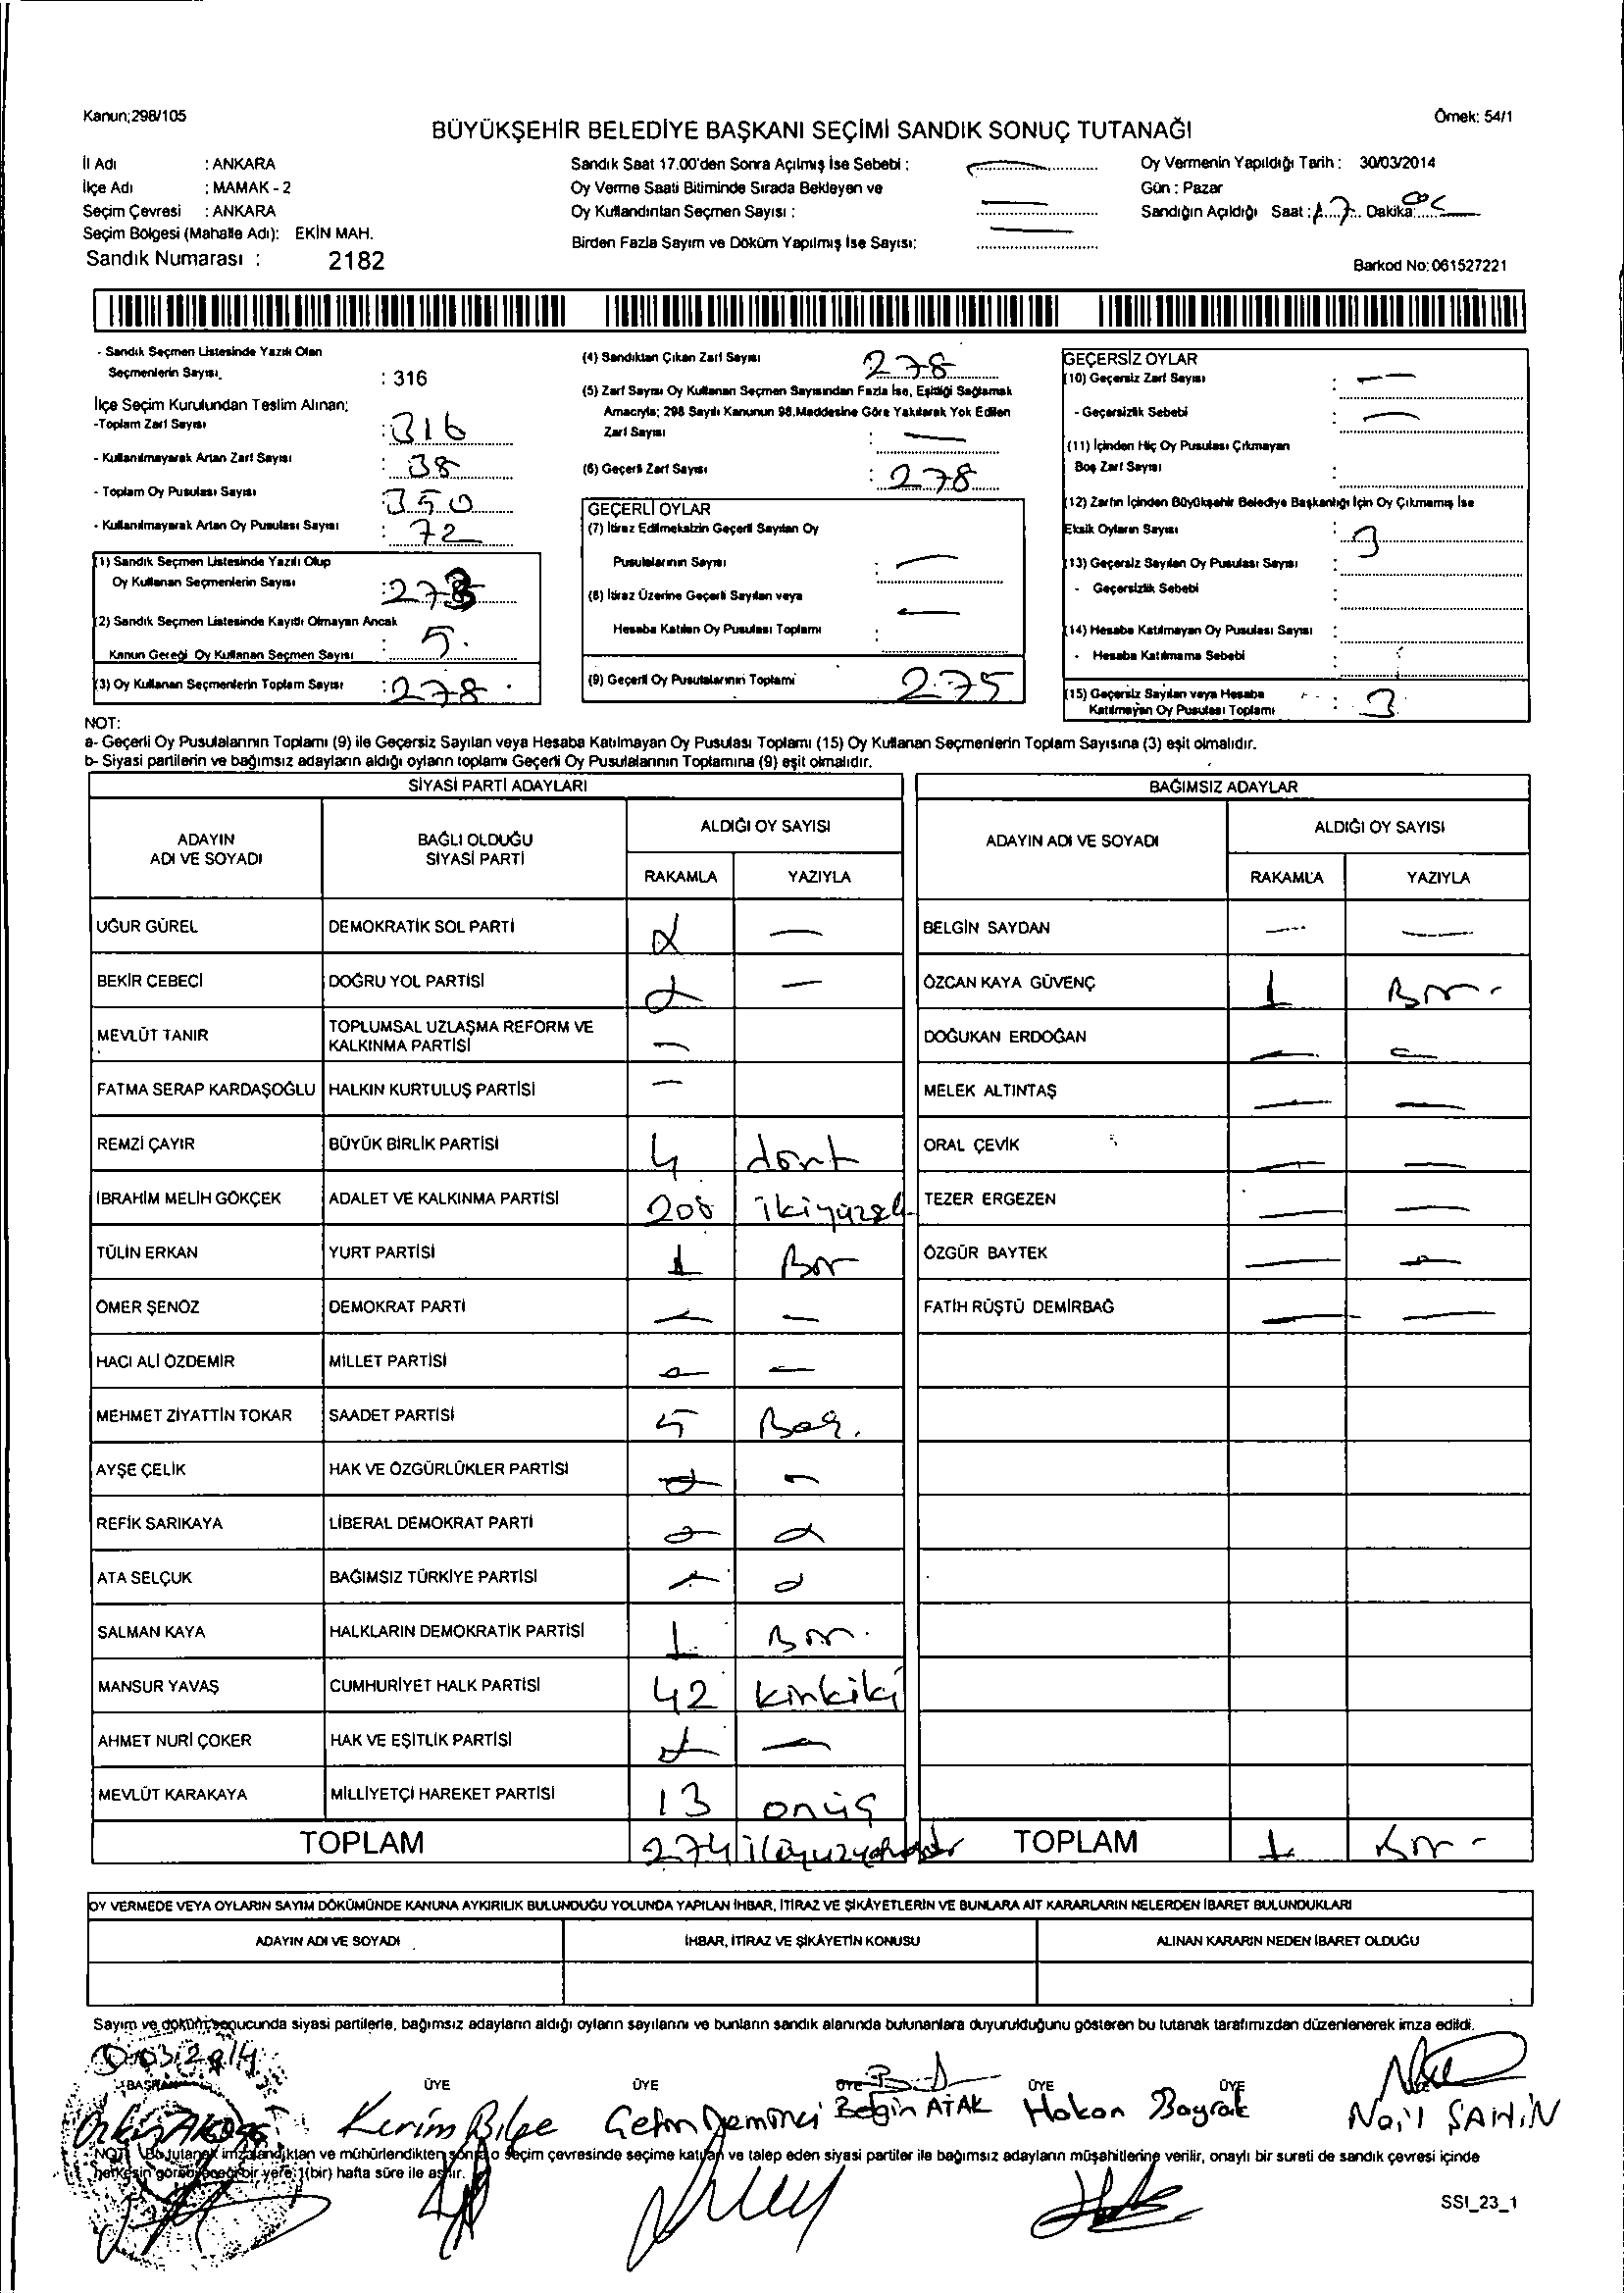 Kanun;298/105
Örnek: 54/1
BÜYÜKŞEHİR BELEDİYE BAŞKANI SEÇİMİ SANDIK SONUÇ TUTANAĞI
İl Adı : ANKARA
İlçe Adı : MAMAK - 2
Seçim Çevresi : ANKARA
Seçim Bölgesi (Mahalle Adı): EKİN MAH.
Sandık Numarası : 2182
Sandık Saat 17.00'den Sonra Açılmış İse Sebebi :
Oy Verme Saati Bitiminde Sırada Bekleyen ve
Oy Kullandırılan Seçmen Sayısı :
Birden Fazla Sayım ve Döküm Yapılmış İse Sayısı:
Oy Vermenin Yapıldığı Tarih : 30/03/2014
Gün : Pazar
Sandığın Açıldığı Saat : 17 Dakika:
Barkod No: 061527221
- Sandık Seçmen Listesinde Yazılı Olan
Seçmenlerin Sayısı : 316
İlçe Seçim Kurulundan Teslim Alınan;
-Toplam Zarf Sayısı : 316
- Kullanılmayarak Artan Zarf Sayısı : 38
- Toplam Oy Pusulası Sayısı : 350
- Kullanılmayarak Artan Oy Pusulası Sayısı : 72
(1) Sandık Seçmen Listesinde Yazılı Olup
Oy Kullanan Seçmenlerin Sayısı : 273
(2) Sandık Seçmen Listesinde Kayıtlı Olmayan Ancak
Kanun Gereği Oy Kullanan Seçmen Sayısı : 5.
(3) Oy Kullanan Seçmenlerin Toplam Sayısı : 278
(4) Sandıktan Çıkan Zarf Sayısı 278
(5) Zarf Sayısı Oy Kullanan Seçmen Sayısından Fazla İse, Eşitliği Sağlamak
Amacıyla; 298 Sayılı Kanunun 98.Maddesine Göre Yakılarak Yok Edilen
Zarf Sayısı : —
(6) Geçerli Zarf Sayısı : 278
GEÇERLİ OYLAR
(7) İtiraz Edilmeksizin Geçerli Sayılan Oy
Pusulalarının Sayısı : —
(8) İtiraz Üzerine Geçerli Sayılan veya
Hesaba Katılan Oy Pusulası Toplamı : —
(9) Geçerli Oy Pusulalarının Toplamı 275
GEÇERSİZ OYLAR
(10) Geçersiz Zarf Sayısı : —
- Geçersizlik Sebebi : —
(11) İçinden Hiç Oy Pusulası Çıkmayan
Boş Zarf Sayısı :
(12) Zarfın İçinden Büyükşehir Belediye Başkanlığı İçin Oy Çıkmamış İse
Eksik Oyların Sayısı : 3
(13) Geçersiz Sayılan Oy Pusulası Sayısı :
- Geçersizlik Sebebi :
(14) Hesaba Katılmayan Oy Pusulası Sayısı :
- Hesaba Katılmama Sebebi :
(15) Geçersiz Sayılan veya Hesaba
Katılmayan Oy Pusulası Toplamı : 3
NOT:
a- Geçerli Oy Pusulalarının Toplamı (9) ile Geçersiz Sayılan veya Hesaba Katılmayan Oy Pusulası Toplamı (15) Oy Kullanan Seçmenlerin Toplam Sayısına (3) eşit olmalıdır.
b- Siyasi partilerin ve bağımsız adayların aldığı oyların toplamı Geçerli Oy Pusulalarının Toplamına (9) eşit olmalıdır.
SİYASİ PARTİ ADAYLARI
ADAYIN ADI VE SOYADI BAĞLI OLDUĞU SİYASİ PARTİ ALDIĞI OY SAYISI
RAKAMLA YAZIYLA
UĞUR GÜREL DEMOKRATİK SOL PARTİ —
BEKİR CEBECİ DOĞRU YOL PARTİSİ —
MEVLÜT TANIR TOPLUMSAL UZLAŞMA REFORM VE KALKINMA PARTİSİ —
FATMA SERAP KARDAŞOĞLU HALKIN KURTULUŞ PARTİSİ —
REMZİ ÇAYIR BÜYÜK BİRLİK PARTİSİ 4 dört
İBRAHİM MELİH GÖKÇEK ADALET VE KALKINMA PARTİSİ 208
TÜLİN ERKAN YURT PARTİSİ 1 Bir
ÖMER ŞENÖZ DEMOKRAT PARTİ — —
HACI ALİ ÖZDEMİR MİLLET PARTİSİ — —
MEHMET ZİYATTİN TOKAR SAADET PARTİSİ 5 Beş.
AYŞE ÇELİK HAK VE ÖZGÜRLÜKLER PARTİSİ —
REFİK SARIKAYA LİBERAL DEMOKRAT PARTİ
ATA SELÇUK BAĞIMSIZ TÜRKİYE PARTİSİ —
SALMAN KAYA HALKLARIN DEMOKRATİK PARTİSİ 1 Bir.
MANSUR YAVAŞ CUMHURİYET HALK PARTİSİ 42 kırkiki
AHMET NURİ ÇOKER HAK VE EŞİTLİK PARTİSİ —
MEVLÜT KARAKAYA MİLLİYETÇİ HAREKET PARTİSİ 13 onüç
TOPLAM 274
BAĞIMSIZ ADAYLAR
ADAYIN ADI VE SOYADI ALDIĞI OY SAYISI
RAKAMLA YAZIYLA
BELGİN SAYDAN — —
ÖZCAN KAYA GÜVENÇ 1 Bir
DOĞUKAN ERDOĞAN — —
MELEK ALTINTAŞ — —
ORAL ÇEVİK — —
TEZER ERGEZEN — —
ÖZGÜR BAYTEK — —
FATİH RÜŞTÜ DEMİRBAĞ — —
TOPLAM 1 Bir
OY VERMEDE VEYA OYLARIN SAYIM DÖKÜMÜNDE KANUNA AYKIRILIK BULUNDUĞU YOLUNDA YAPILAN İHBAR, İTİRAZ VE ŞİKÂYETLERİN VE BUNLARA AİT KARARLARIN NELERDEN İBARET BULUNDUKLARI
ADAYIN ADI VE SOYADI İHBAR, İTİRAZ VE ŞİKÂYETİN KONUSU ALINAN KARARIN NEDEN İBARET OLDUĞU
Sayım ve döküm sonucunda siyasi partilerle, bağımsız adayların aldığı oyların sayılarını ve bunların sandık alanında bulunanlara duyurulduğunu gösteren bu tutanak tarafımızdan düzenlenerek imza edildi.
BAŞKAN ÜYE ÜYE ÜYE ÜYE ÜYE
Kerim Bilge Çetin Demirci Belgin ATAK Hakan Bayrak Nail ŞAHİN
NOT: Bu tutanak imzalandıktan ve mühürlendikten sonra o seçim çevresinde seçime katılan ve talep eden siyasi partiler ile bağımsız adayların müşahitlerine verilir, onaylı bir sureti de sandık çevresi içinde
herkesin görebileceği bir yere 1(bir) hafta süre ile asılır.
SSI_23_1